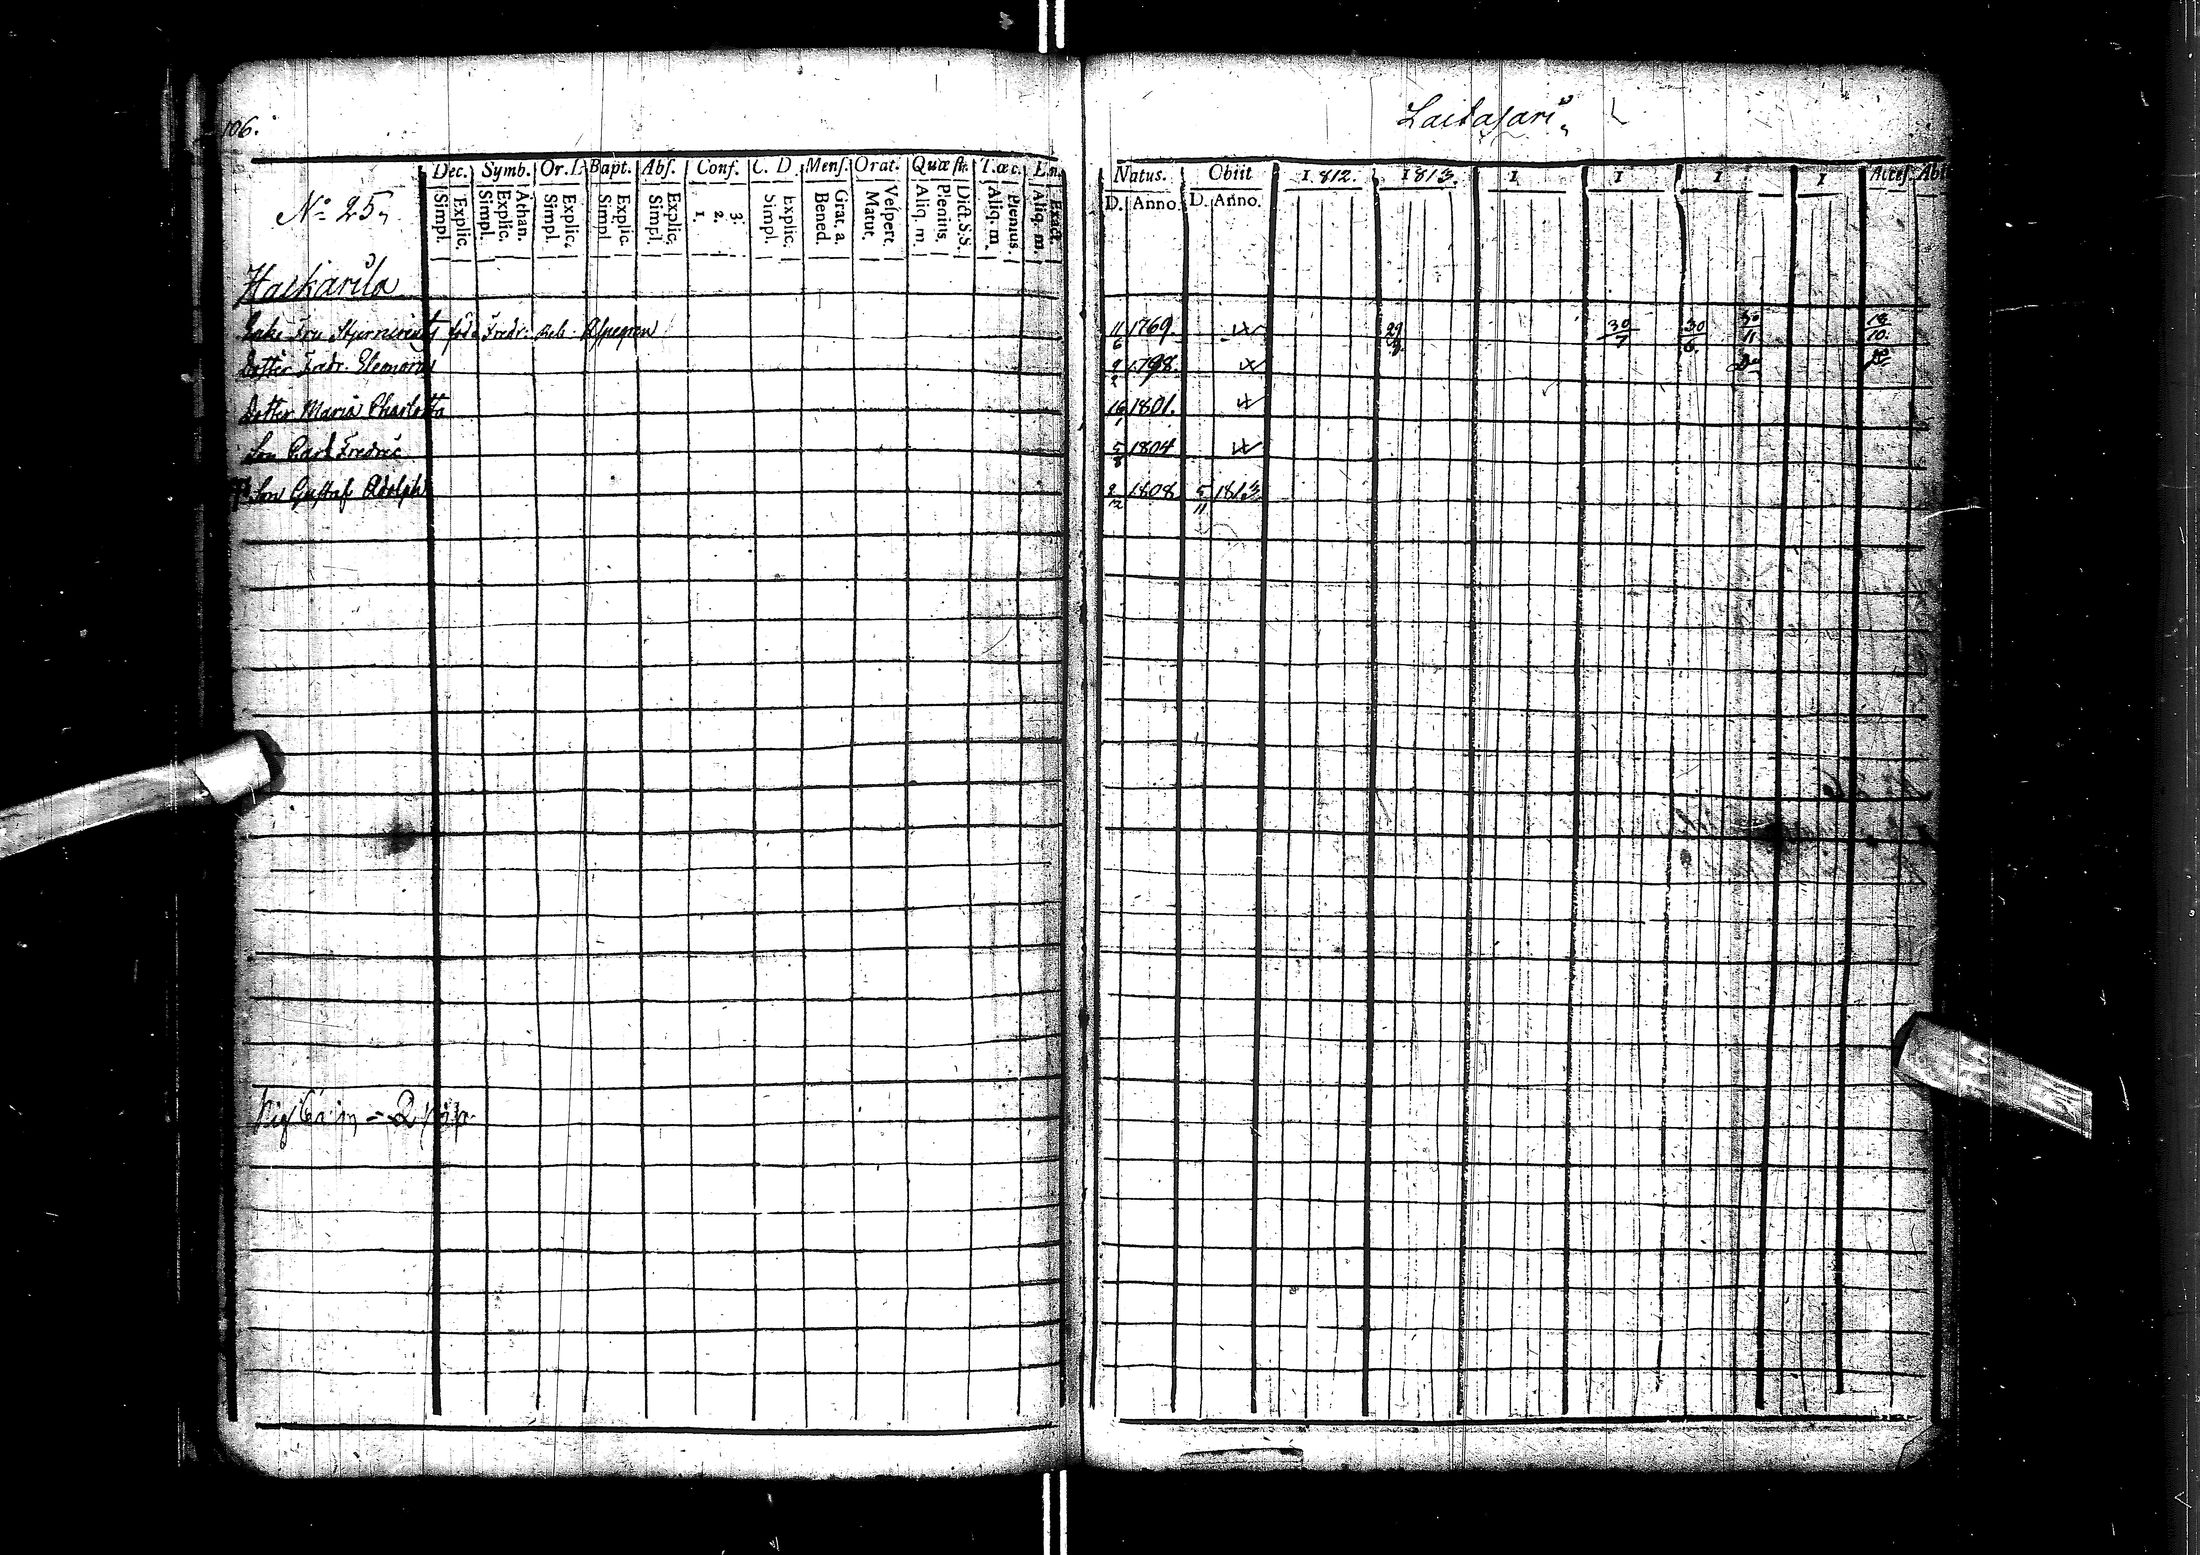 106.
Laitasari
Dec. Symb. Or. D. Bapt. Abs. Conf. C. D. Mens. Orat. Quæst. T. œc. En.
Natus. Obiit 1812. 1813. 1 1 1 1 Acces. Abit
No 25
Simpl. Explic. Simpl. Explic. Athan. Simpl. Explic. Simpl. Explic. Simpl. Explic. 1. 2. 3. Simpl. Explic. Bened. Grat. a. Matut. Vespert. Aliq. m. Plenius. Dict. S.S. Aliq. m. Plenius. Aliq. m. Exact.
D. Anno D. Anno.
Haikarila
Enke Fru Stjerncreutz född Fredr. Beb. 11/6 1769 29/8 30/7 30/6 30/11 18/10
Dotter Fredr. Eleonora 9/2 1798 Do Do
Dotter Maria Charlotta 16 1801.
Son Carl Fredric 5/8 1804
Son Gustaf Adolph 2/12 1808 5/11 1813